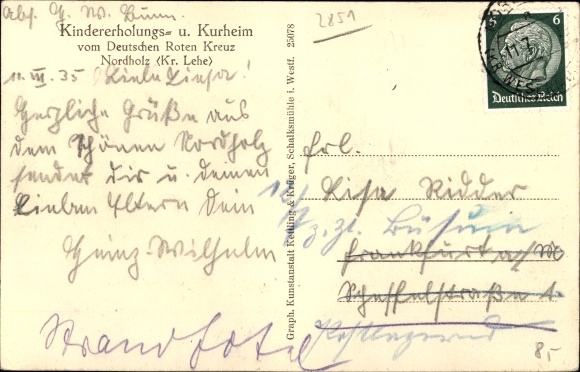 Abs. H. W. Bunn.
Kindererholungs- u. Kurheim
vom Deutschen Roten Kreuz
Nordholz (Kr. Lehe)
11. VII. 35 Liebe Liesa!
Herzliche Grüße aus
dem schönen Nordholz
sendet dir u. deinen
lieben Eltern Dein
Heinz-Wilhelm
Graph. Kunstanstalt Kettling & Krüger, Schalksmühle i. Westf. 25078
2851
6 6
Deutsches Reich
Frl.
Lisa Ridder
z. Zt. Büsum
Frankfurt a/M
Scheffelstraße 1.
Postlagernd
Strandhotel
8,-